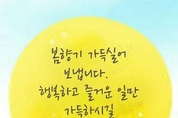 봄향기 가득실어
보냅니다.
행복하고 즐거운 일만
가득하시길